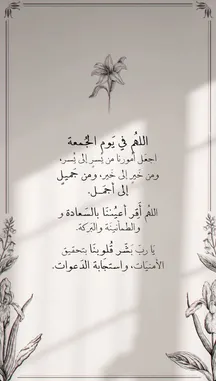 اللهُم في يَوم الجُمعة
اجعل أمورنا من يُسر إلى يُسر،
ومن خَير إلى خَير، ومن جَميل
إلى أجمَل.
اللهُم أقِر أعيُننا بالسَعادة و
والطمأنينَة والبَركة.
يَا ربّ بَشّر قُلوبنَا بتحقيق
الأمنيَات، واستجَابة الدَعوات.